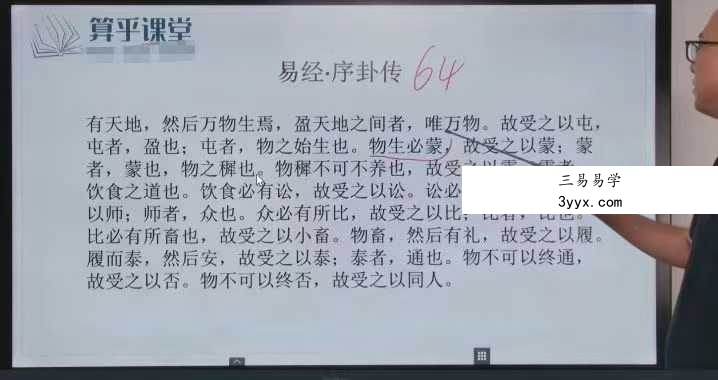 算平课堂
易经·序卦传 64
有天地，然后万物生焉，盈天地之间者，唯万物。故受之以屯，
屯者，盈也；屯者，物之始生也。物生必蒙，故受之以蒙；蒙
者，蒙也，物之穉也。物穉不可不养也，故受之以需
饮食之道也。饮食必有讼，故受之以讼。讼必
以师；师者，众也。众必有所比，故受之以比；比者，比也。
比必有所畜也，故受之以小畜。物畜，然后有礼，故受之以履。
履而泰，然后安，故受之以泰；泰者，通也。物不可以终通，
故受之以否。物不可以终否，故受之以同人。
三易易学
3yyx.com